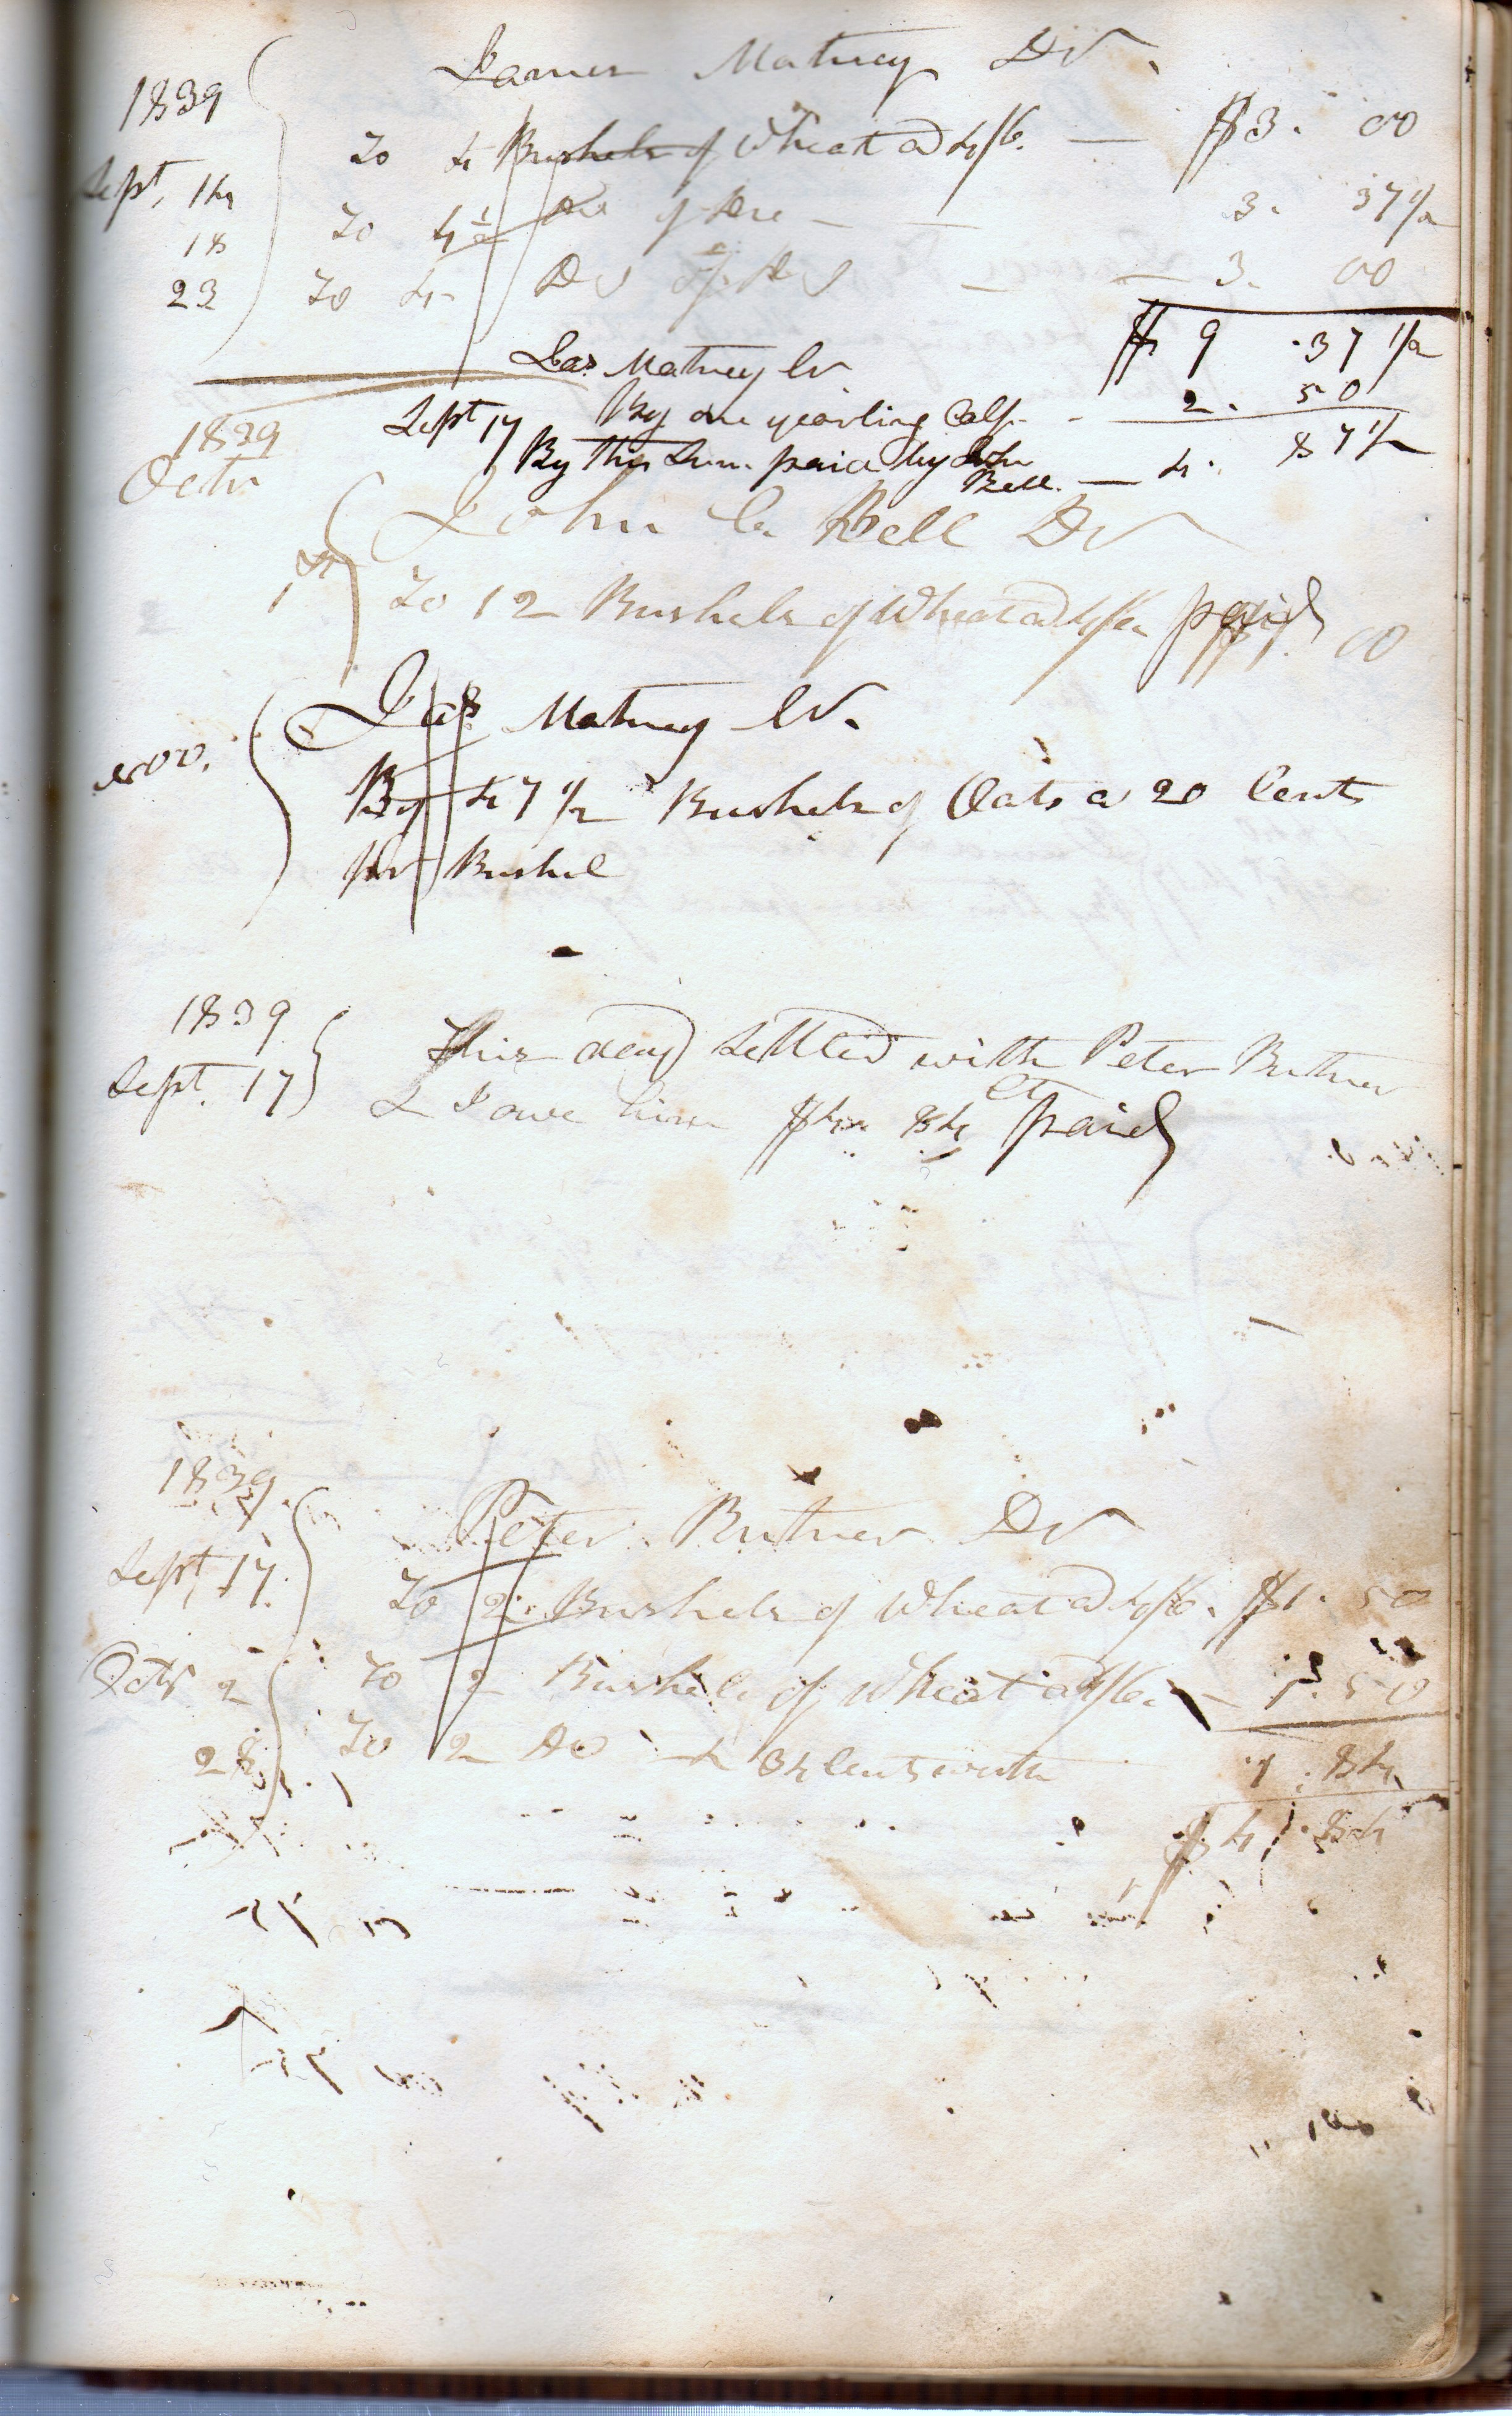 James Matney Dr.
1839
Sept, 14 To 4 Bushels of Wheat a 4/6. — $3. 00
18 To 4 1/2 Do of Do — — 3. 37 1/2
23 To 4 Do of Do — — 3. 00
$ 9 .37 1/2
Jas Matney Cr.
Sept 17 By one yearling Calf - 2. 50
By this Sum paid by John Bell. — 4. 87 1/2
1839
Octr
John C. Bell Dr
1st To 12 Bushels of Wheat a 4/6 paid $9. 00
Jas Matney Cr.
Nov. By 47 1/2 Bushels of Oats a 20 Cents
per Bushel
1839
Sept. 17 This day Settled with Peter Butner
& I owe him $4. 84 Ct paid
1839.
Peter Butner Dr
Sept, 17. To 2 Bushels of Wheat a 4/6. $1. 50
Octr 2 To 2 Bushels of Wheat a 4/6. — 1. 50
28 To 2 Do & 34 Cents worth 1. 84
$4. 84